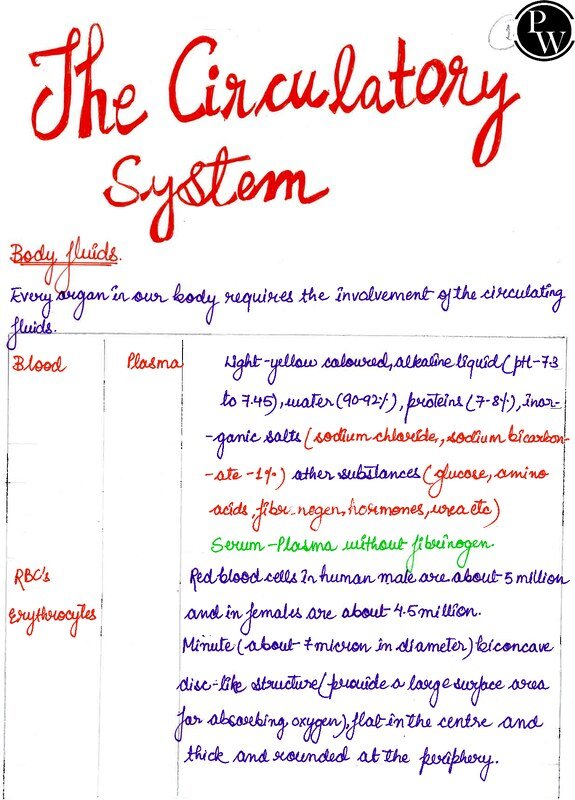 PW
The Circulatory
System
Body fluids.
Every organ in our body requires the involvement of the circulating
fluids.
Blood Plasma Light-yellow coloured, alkaline liquid (pH-7.3
to 7.45), water (90-92%), proteins (7-8%), inor-
-ganic salts (sodium chloride, sodium bicarbon-
-ate -1%) other substances (glucose, amino
acids, fibrinogen, hormones, urea etc)
Serum-Plasma without fibrinogen.
RBC's Red blood cells in human male are about 5 million
Erythrocytes and in females are about 4.5 million.
Minute (about 7 micron in diameter) biconcave
disc-like structure (provide a large surface area
for absorbing oxygen), flat in the centre and
thick and rounded at the periphery.